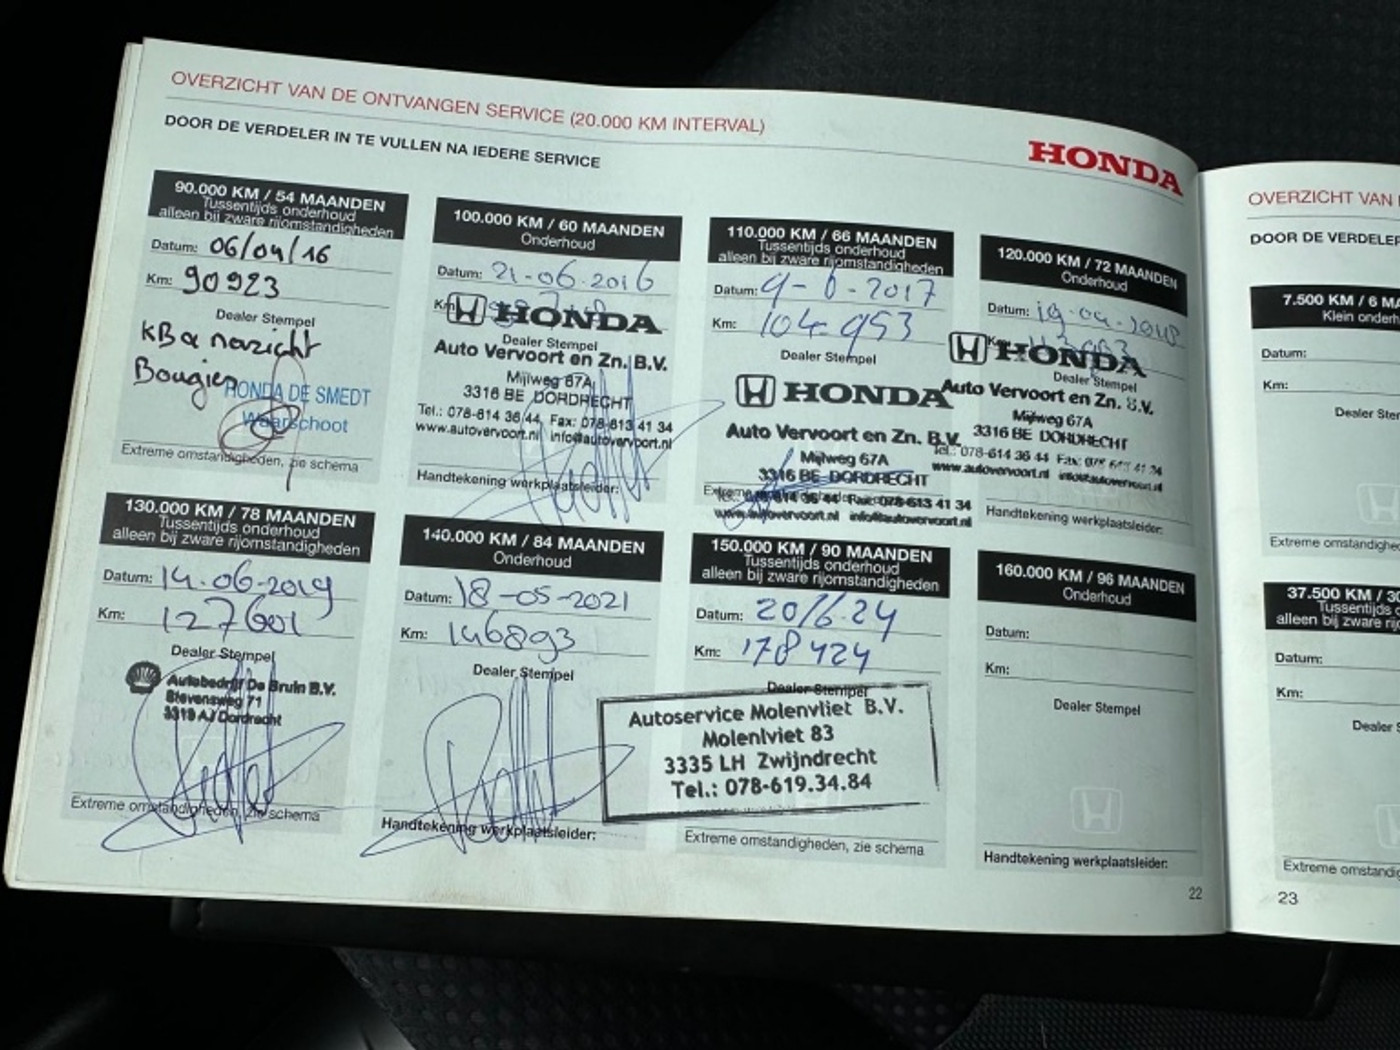 OVERZICHT VAN DE ONTVANGEN SERVICE (20.000 KM INTERVAL)
DOOR DE VERDELER IN TE VULLEN NA IEDERE SERVICE
HONDA
90.000 KM / 54 MAANDEN
Tussentijds onderhoud
alleen bij zware rijomstandigheden
Datum: 06/04/16
Km: 90923
Dealer Stempel
Bougies
HONDA DE SMEDT
Waarschoot
Extreme omstandigheden, zie schema
100.000 KM / 60 MAANDEN
Onderhoud
Datum: 21-06-2016
Km:
HONDA
Dealer Stempel
Auto Vervoort en Zn. B.V.
Mijlweg 67A
3316 BE DORDRECHT
Tel.: 078-614 36 44 Fax: 078-613 41 34
www.autovervoort.nl info@autovervoort.nl
Handtekening werkplaatsleider:
110.000 KM / 66 MAANDEN
Tussentijds onderhoud
alleen bij zware rijomstandigheden
Datum: 9-6-2017
Km: 104-953
Dealer Stempel
HONDA
Auto Vervoort en Zn. B.V.
Mijlweg 67A
3316 BE DORDRECHT
Tel.: 078-614 36 44 Fax: 078-613 41 34
www.autovervoort.nl info@autovervoort.nl
120.000 KM / 72 MAANDEN
Onderhoud
Datum: 19-04-2018
Km:
HONDA
Dealer Stempel
Auto Vervoort en Zn. B.V.
Mijlweg 67A
3316 BE DORDRECHT
Tel.: 078-614 36 44 Fax: 078-613 41 34
www.autovervoort.nl info@autovervoort.nl
Handtekening werkplaatsleider:
130.000 KM / 78 MAANDEN
Tussentijds onderhoud
alleen bij zware rijomstandigheden
Datum: 14-06-2019
Km: 127601
Dealer Stempel
Autobedrijf De Bruin B.V.
Stevensweg 71
3319 AJ Dordrecht
Extreme omstandigheden, zie schema
140.000 KM / 84 MAANDEN
Onderhoud
Datum: 18-05-2021
Km: 146893
Dealer Stempel
Handtekening werkplaatsleider:
150.000 KM / 90 MAANDEN
Tussentijds onderhoud
alleen bij zware rijomstandigheden
Datum: 20/6-24
Km: 178424
Dealer Stempel
Autoservice Molenvliet B.V.
Molenlviet 83
3335 LH Zwijndrecht
Tel.: 078-619.34.84
Extreme omstandigheden, zie schema
160.000 KM / 96 MAANDEN
Onderhoud
Datum:
Km:
Dealer Stempel
Handtekening werkplaatsleider:
22
OVERZICHT VAN
DOOR DE VERDELER
7.500 KM / 6
Klein
Datum:
Km:
Dealer
Extreme
37.500 KM /
Datum:
Km:
Dealer
Extreme
23